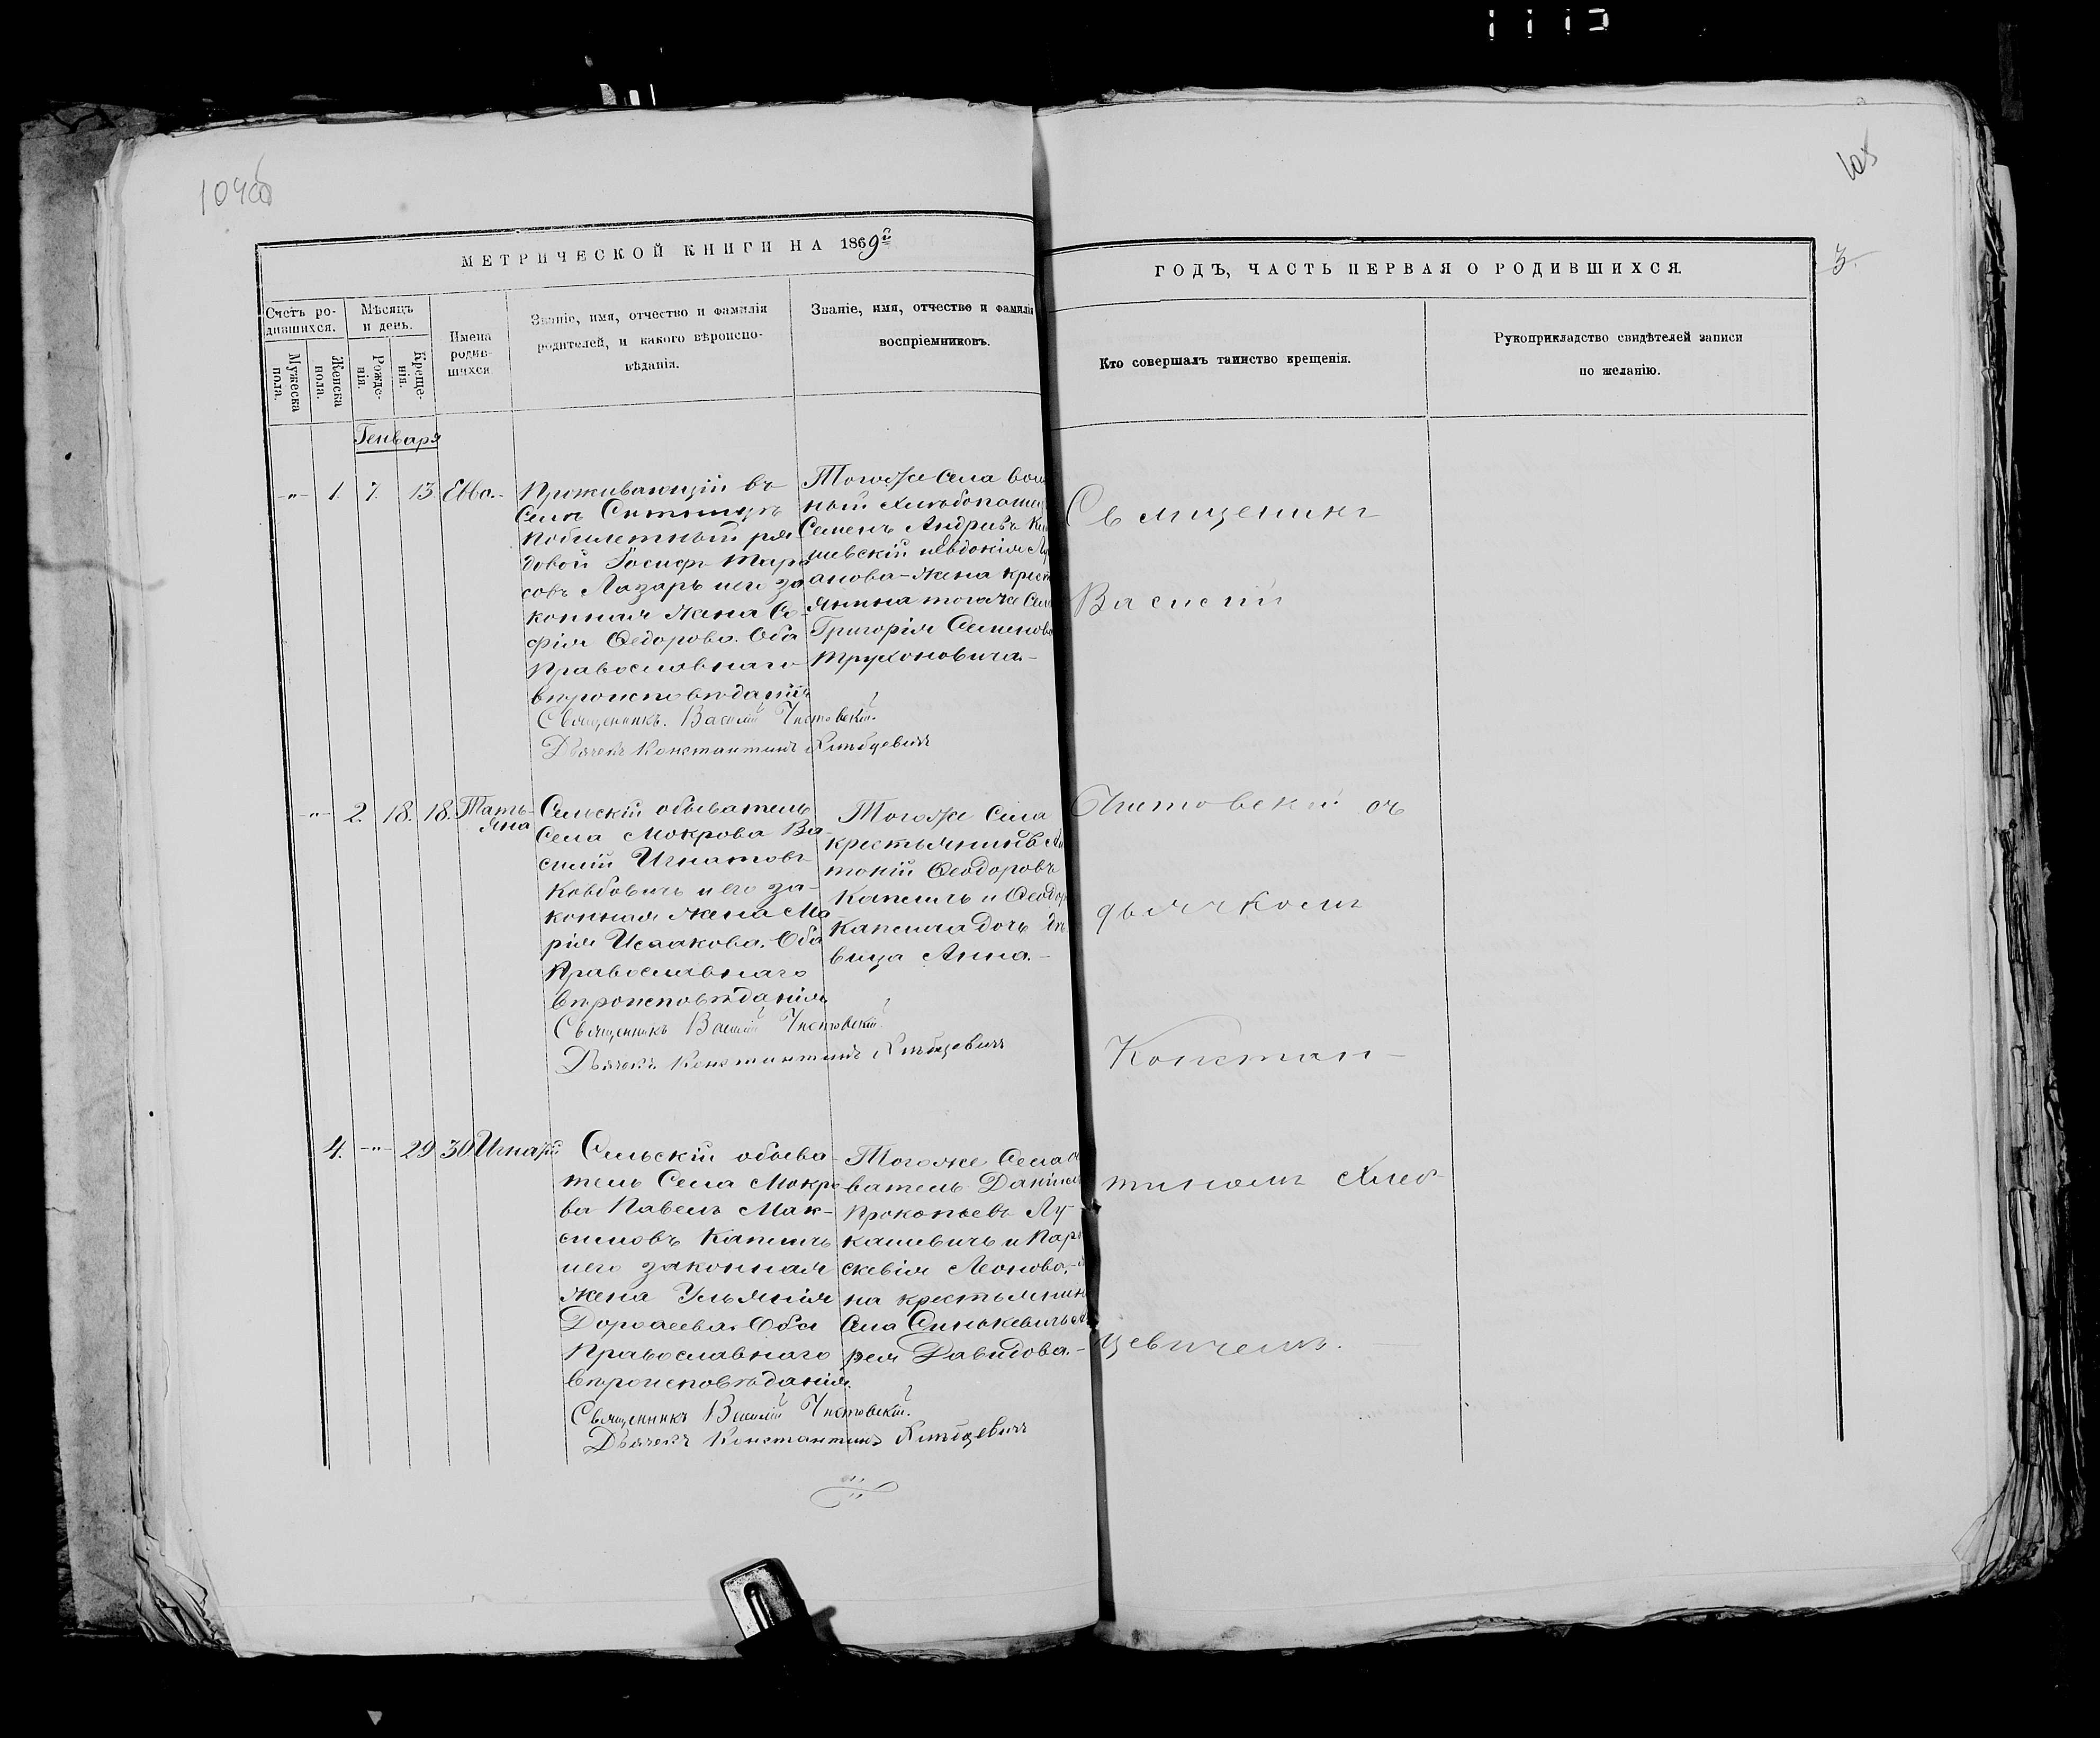 104об
105
МЕТРИЧЕСКОЙ КНИГИ НА 1869й
ГОДЪ, ЧАСТЬ ПЕРВАЯ О РОДИВШИХСЯ.
3.
Счетъ ро-
дившихся.
Мужеска
пола.
Женска
пола.
Мѣсяцъ
и день.
Рожде-
нія.
Креще-
нія.
Имена
родив-
шихся
Званіе, имя, отчество и фамилія
родителей, и какого вѣроиспо-
вѣданія.
Званіе, имя, отчество и фамилія
воспріемниковъ.
Кто совершалъ таинство крещенія.
Рукоприкладство свидѣтелей записи
по желанію.
Генваря
-"- 1. 7. 13 Евва.-
Проживающій въ
Селѣ
побилетный ря
довой Іосифъ Тара
совъ Лазарь и его за
конная жена Со-
фія Ѳедорова. Оба
Православнаго
вѣроисповѣданія
Священникъ. Василій Чистовскій.
Дьячекъ Константинъ Хлѣбцевичъ
Тогоже Села воль
ный хлѣбопашец
Семенъ Андріевъ
шевскій и Евдокія
анова-жена крест
янина тогоже Села
Григорія Семенова
Трухоновича.-
-"- 2. 18. 18. Тать-
яна
Сельскій обыватель
Села Мокрова Ва-
силій Игнатовъ
Ковбовичъ и его за-
конная жена Ма
рія Исаакова. Оба
Православнаго
вѣроисповѣданія
Священникъ Василій Чистовскій.
Дьячекъ Константинъ Хлѣбцевичъ
Тогоже Села
крестьянинъ Ан
тоній Ѳеодоровъ
Капшичъ и Ѳеодор
Капшича дочь дѣ
вица Анна.-
4. -"- 29 30 Игнатій
Сельскій обыва-
тель Села Мокро
ва Павелъ Мак-
симовъ Капшичъ
и его законная
жена Ульянія
Дорофеева. Оба
Православнаго
вѣроисповѣданія.
Священникъ Василій Чистовскій.
Дьячекъ Константинъ Хлѣбцевичъ
Тогоже Села об
ватель Даніилъ
Прокопьевъ Лу-
кашевичъ и Пара
скевія Леонова,-
на крестьянина
Села Синкевичъ
рея Давидова.-
Священникъ
Василій
Чистовскій съ
дьячкомъ
Констан-
тиномъ Хлеб-
цевичемъ.